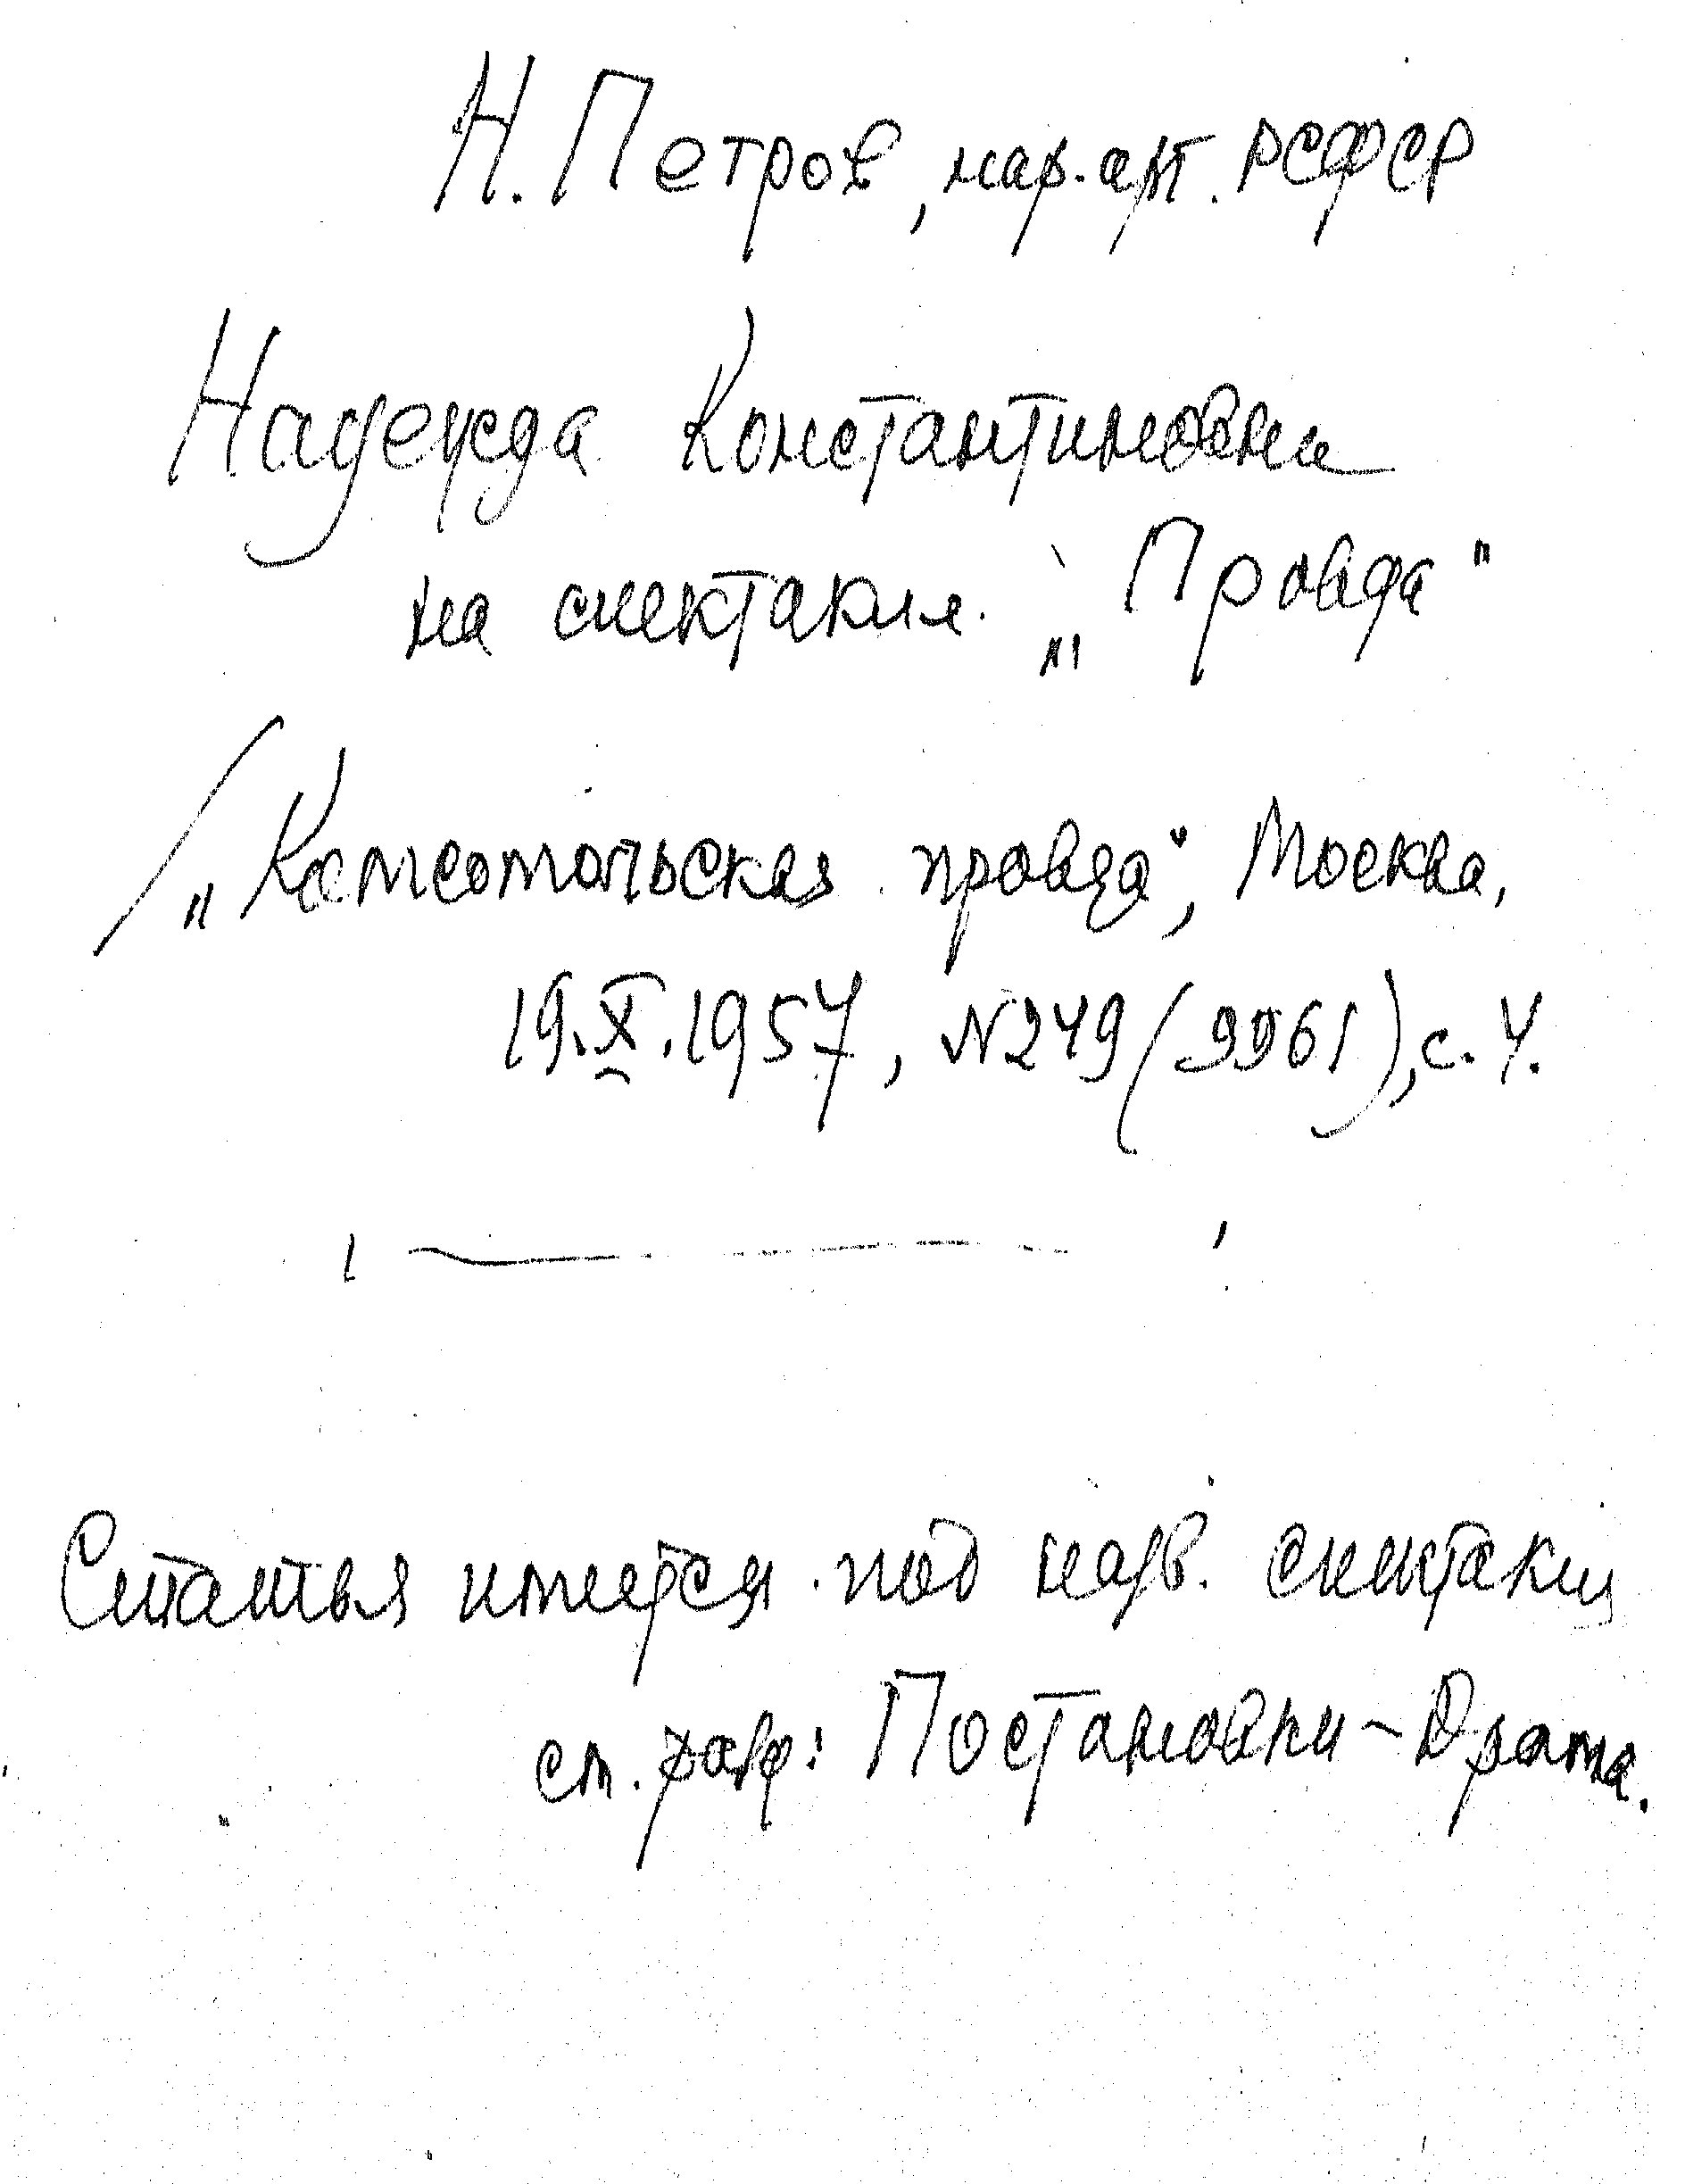 Н. Петров, нар. арт. РСФСР
Надежда Константиновна
на спектакле „Правда"
„Комсомольская правда", Москва,
19.X.1957, N249 (9961), с. 4.
Статья имеется под назв. спектакля
см. разд: Постановки - Драма.